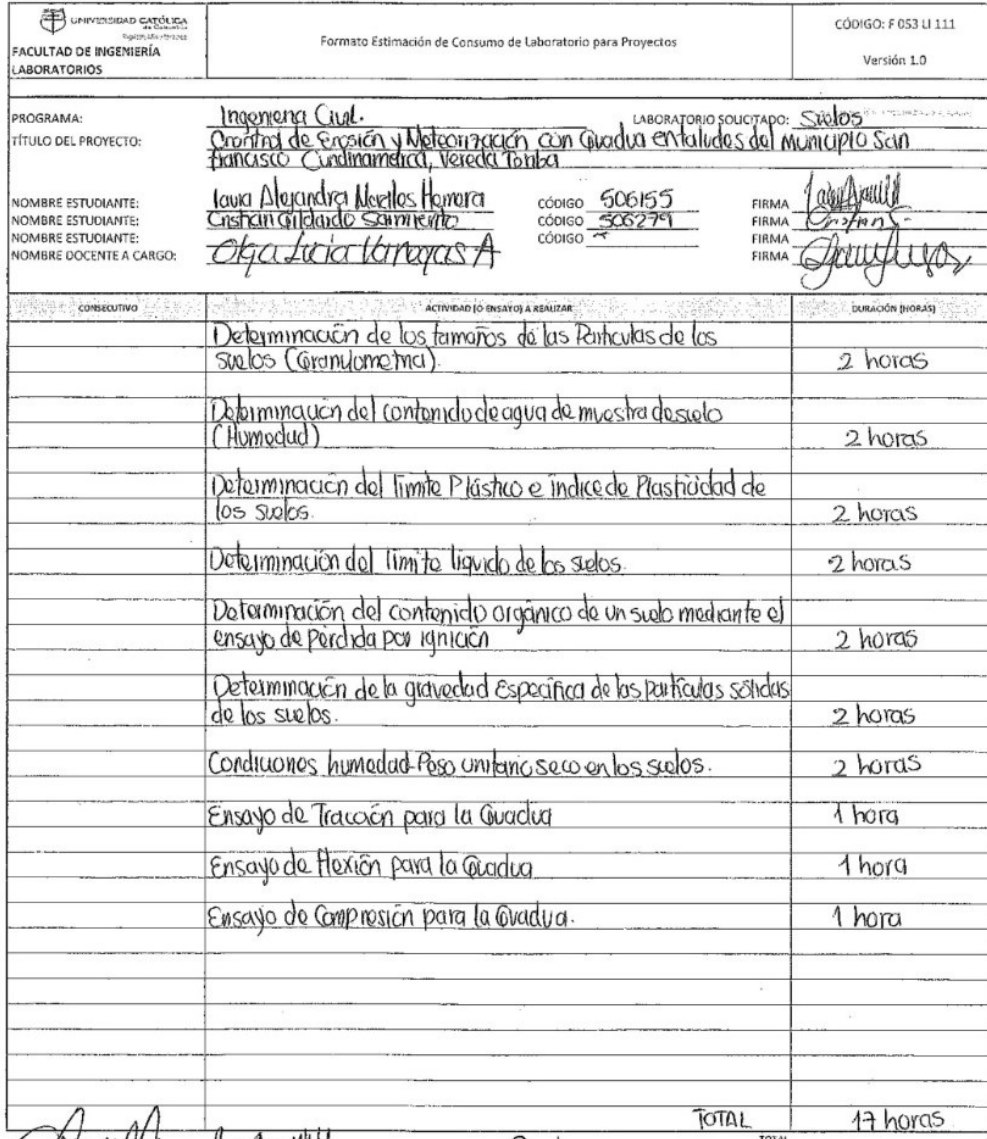 UNIVERSIDAD CATÓLICA
de Colombia
FACULTAD DE INGENIERÍA
LABORATORIOS
Formato Estimación de Consumo de Laboratorio para Proyectos
CÓDIGO: F 053 LI 111
Versión 1.0
PROGRAMA: Ingenieria Civil. LABORATORIO SOLICITADO: Suelos
TÍTULO DEL PROYECTO: Crontrol de Erosión y Meteorización con Guadua en taludes del Municipio San
francisco Cundinamarca, Vereda Toriba
NOMBRE ESTUDIANTE: Laura Alejandra Herrera CÓDIGO 506155 FIRMA
NOMBRE ESTUDIANTE: Cristian Gildardo Sarmiento CÓDIGO 506279 FIRMA Cristian S.
NOMBRE ESTUDIANTE: CÓDIGO FIRMA
NOMBRE DOCENTE A CARGO: Olga Lucia Vanegas A FIRMA
CONSECUTIVO ACTIVIDAD (O ENSAYO) A REALIZAR DURACIÓN (HORAS)
Determinación de los tamaños de las Particulas de los
suelos (Granulometria). 2 horas
Determinación del contenido de agua de muestra de suelo
(Humedad) 2 horas
Determinación del limite Plástico e indice de Plasticidad de
los suelos. 2 horas
Determinación del limite liquido de los suelos. 2 horas
Determinación del contenido orgánico de un suelo mediante el
ensayo de perdida por ignición 2 horas
Determinación de la gravedad Especifica de las particulas sólidas
de los suelos. 2 horas
Condiciones humedad-Peso unitario seco en los suelos. 2 horas
Ensayo de Tracción para la Guadua 1 hora
Ensayo de flexión para la Guadua 1 hora
Ensayo de Compresión para la Guadua. 1 hora
TOTAL 17 horas
TOTAL